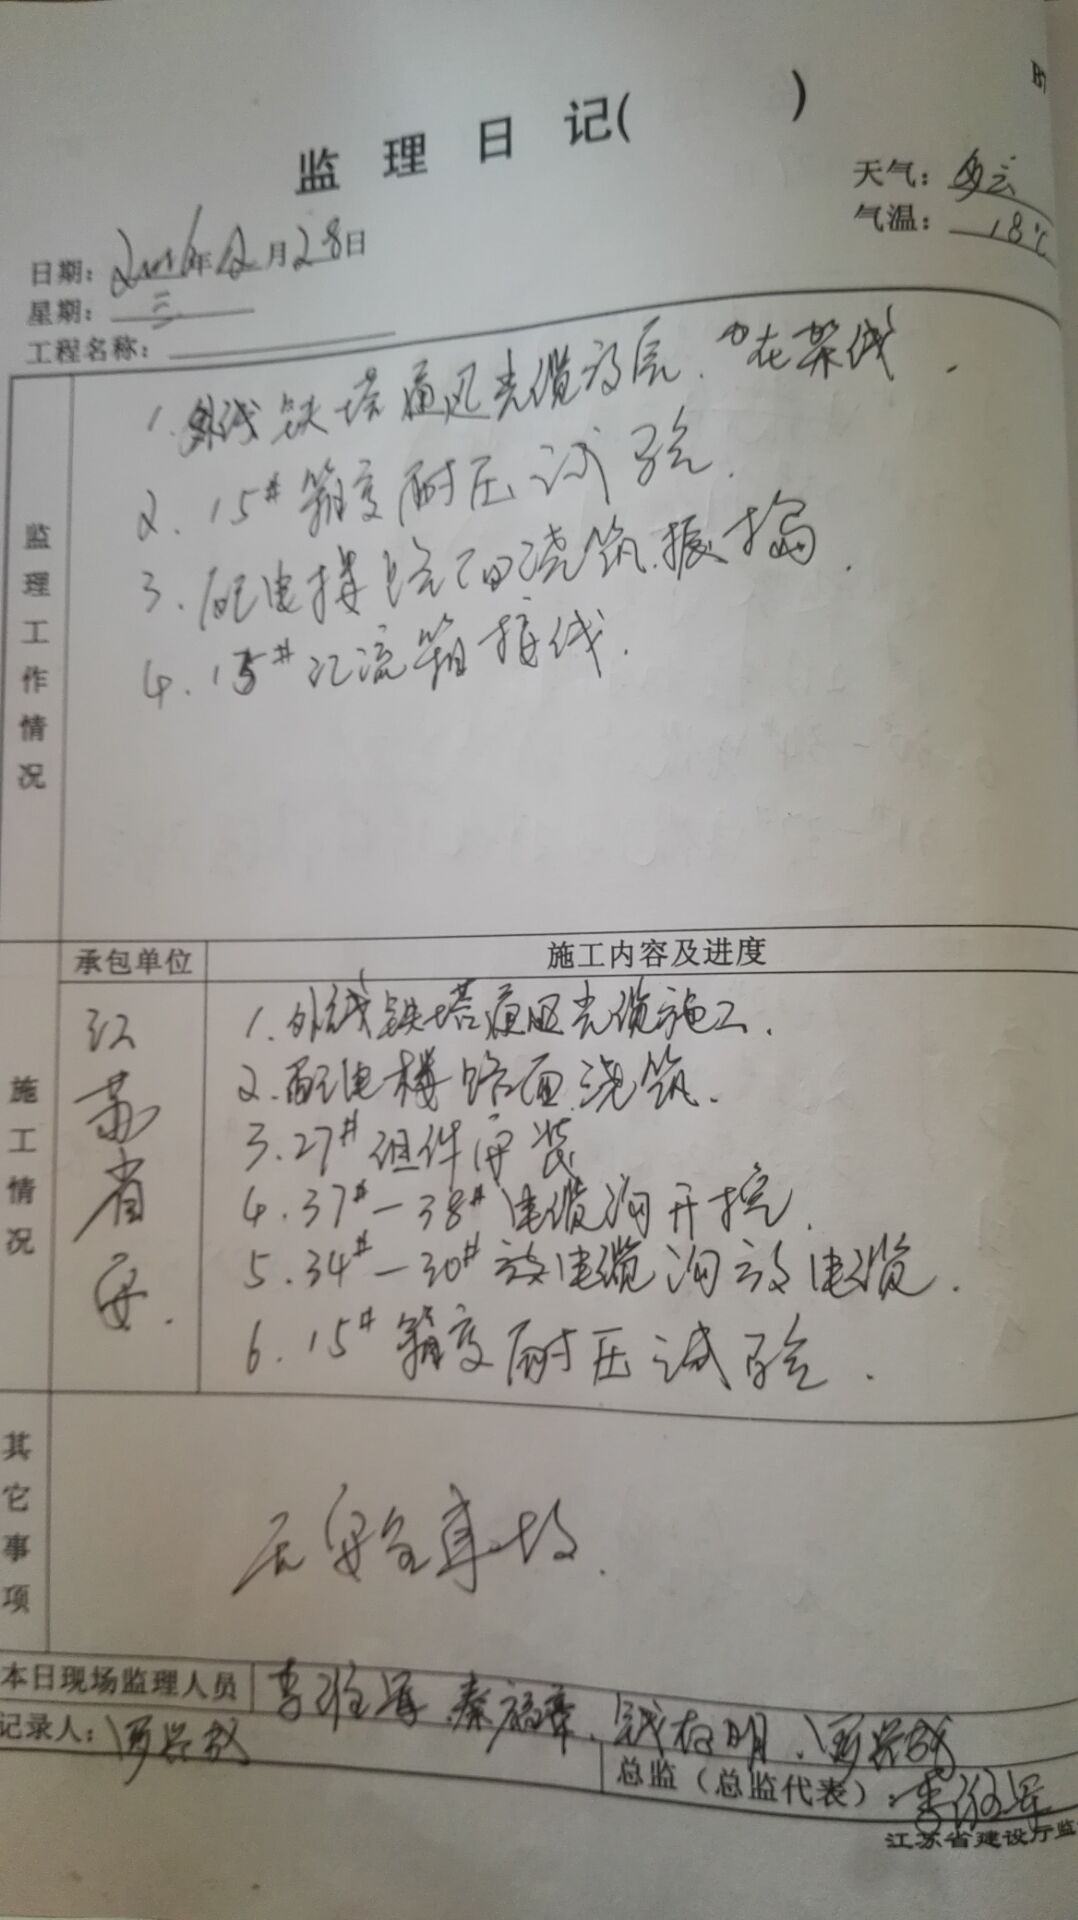 监理日记( )
天气：多云
气温：18℃
日期：2016年12月28日
星期：三
工程名称：
监理工作情况
1.外线铁塔通风光缆放后.在架线.
2.15#箱变耐压试验.
3.配电楼路面浇筑.振捣.
4.15#汇流箱接线.
承包单位 施工内容及进度
施工情况
江苏省安.
1.外线铁塔通风光缆施工.
2.配电楼路面浇筑.
3.27#组件安装
4.37#—38#电缆沟开挖.
5.34#—30#放电缆沟放电缆.
6.15#箱变耐压试验.
其它事项
无安全事故.
本日现场监理人员
记录人：
总监（总监代表）：
江苏省建设厅监